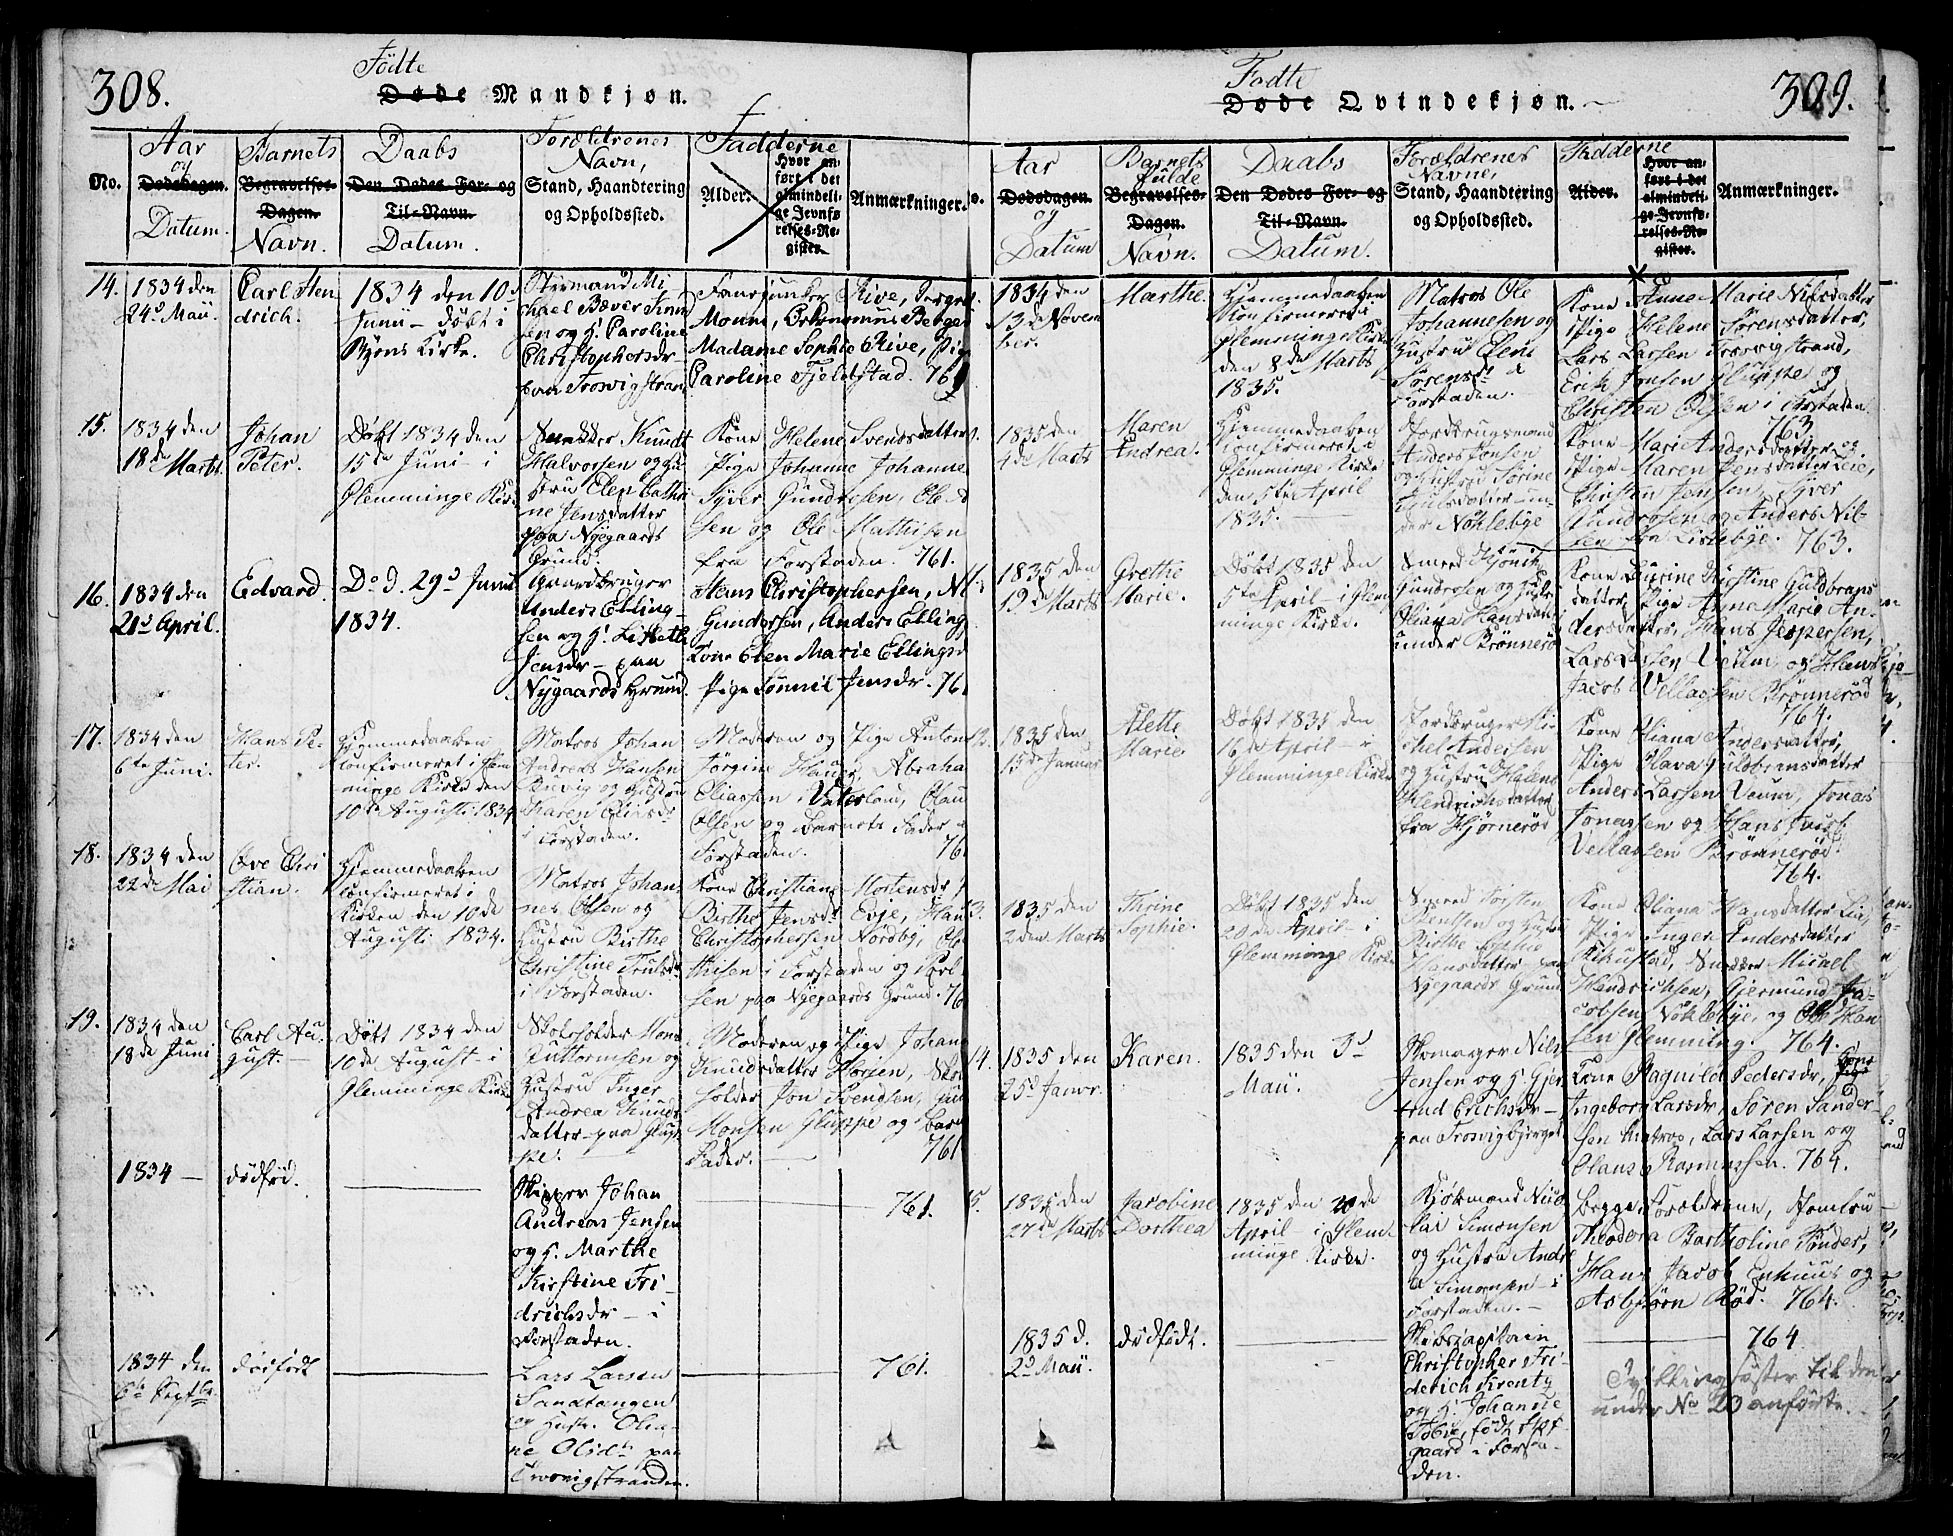 308.
Födte
Døde Mandkjøn.
No.
Aar
og
Dødsdagen.
Datum.
Barnets
Begravelses-
Dagen.
Navn.
Daabs
Den Dødes For- og
Til-Navn.
Datum.
Forældrenes
Navn,
Stand, Haandtering
og Opholdssted.
Fadderne
Alder.
Hvor an-
ført i det
almindeli-
ge Jevnfø-
relses-Re-
gister.
Anmærkninger.
14.
1834 den
24d Maii.
Carl Hen
drich.
1834 den 10d
Junii - döbt i
Byens Kirke.
Styrmand Mi-
chael Bæver
sen og H. Caroline
Christophersdr
paa Trosvigstran
Rive,
Madame Sophie Rive, Pig
Caroline Fjeldstad. 761
15.
1834 den
18de Marts
Johan
Peter.
Döbt 1834 den
15de Juni - i
Glemminge Kir
Snedker Knudt
Halvorsen og Hu
stru Elen Cathri
ne Jensdatter
paa Nyegaards
Grund
Kone Helene Svendsdatter
Pige Johanne Johanne
Syver Gundrosen, Ole
sen og Ole Mathisen
fra Forstaden. 761.
16.
1834 den
21d April.
Edvard.
Do d. 29d Junii
1834.
Gaardbruger
Anders Elling-
sen og H. Lisbeth
Jensdr - paa
Nygaards Grund.
Hans Christophersen,
Gundersen, Anders Elling
Kone Elen Marie Ellingsd
Pige Jensdr. 76
17.
1834 den
6te Juni.
Hans Pe-
ter.
Hjemmedaaben
Confirmeret i Glem
minge Kirke den
10de August: 1834
Matros Johan
Andreas Hansen
og Hustru
Karen
i Forstaden.
Moderen og Pige
Jörgine Abraha
Eliassen i Vaterland, Olau
Olsen og Barnets Fader
Forstaden. 76
18.
1834 den
22de Mai
Ove Chri
stian.
Hjemmedaaben
confirmeret i
Kirken den 10de
August: 1834.
Matros Johan-
nes Olsen og
Hustru Birthe
Christine Trulsdr
i Forstaden.
Kone Christiane Mortensdr
Birthe Jensd Evje, Hans
Christophersen Nordby, Ol
thisen i Forstaden og Carl
sen paa Nyegaards Grund. 76
19.
1834 den
18de Juni
Carl Au
gust. -
Döbt 1834 den
10de August - i
Glemminge Kirk
Guttormsen og
Hustru Inger
Andrea Knuds
datter - paa Glup
pe.
Moderen og Pige Johan
Knudsdatter
Jon Svendsen,
Monsen Gluppe og Bar
Fader. 761
1834 -
dödfød.
Skipper Johan
Andreas Jensen
og H. Marthe
Kirstine Fri-
drichsdr - i
Forstaden.
761.
1834 den
6te Septbr
dødfødt
Lars Larsen
Sandtangen
og Hustr. Oli-
ne Olsdr paa
Trosvigstranden.
761.
309.
Födte
Døde Qvindekjøn.
Aar
Dødsdagen.
og
Datum
Barnets
fulde
Begravelses-
Dagen.
Navn.
Daabs
Den Dødes For- og
Til-Navn.
Datum.
Forældrenes
Navne,
Stand, Haandtering
og Opholdssted.
Fadderne
Alder.
Hvor an-
ført i det
almindeli-
ge Jevnfø-
relses-Re-
gister.
Anmærkninger.
1834 den
13de Novem
ber.
Marthe.
Hjemmedaaben
Confirmeret i
Glemminge Kirke
den 8de Marts
1835.
Matros Ole
Johannesen og
Hustru Elen
Sörensdr i
Forstaden.
Kone Anne Marie Nilsdatter
Pige Helene Sörensdatter,
Lars Larsen Trosvigstrand,
Erik Jonsen Gluppe og
Christen Olsen i Forstaden
763
1835 den
4de Marts
Maren
Andrea.
Hjemmedaaben
Confirmeret i
Glemminge Kirke
den 5te April
1835.
Jordbrugsmand
Anders Jonsen
og Hustru Sörine
datter - un-
der Nöklebye
Kone Mari Andersdatter og
Pige Maren Jensdatter Leie,
Christen Jensen, Syver
Gundrosen og Anders Nil-
sen fra Lislebye. 763.
1835 den
19de Marts
Grethe
Marie.
Döbt 1835 den
5te April - i Glem
minge Kirke.
Smeed
Gundrosen og Hustr
Oliana Hansdatt
under Brönneröd
Kone Kirstine Guldbrans
datter, Pige Anna Marie An-
dersdatter, Hans Jespersen,
Lars Veum og Johan
Jacob Vellassen Brönneröd
764.
1835 den
15de Januar
Alette
Marie
Döbt 1835 den
16de April - i
Glemminge Kirke
Jordbruger Mi-
chel Andersen
og Hustru Helene
Hendrichsdatter
fra Hjørneröd
Kone Oliana Andersdatter,
Pige datter
Anders Larsen Veum, Jonas
Jonassen og Hans
Vellassen Brönneröd.
764.
13.
1835 den
2den Marts
Thrine
Sophie.
Döbt 1835 den
20de April - i
Glemminge Kirke
Smeed Torsten
Bentsen og Hustr
Birthe Sophie
Hansdatter - paa
Nyegaards Grund
Kone Oliana Hansdatter
Pige Inger Andersdatter
Snedker Micael
Hendrichsen, Gjermund Ja-
cobsen Nöklebye, og Ole Han
sen Glemming. 764.
14.
1835 den
25d Janvr.
Karen.
1835 den 3d
Maii.
Skomager Nils
Jensen og H. Gjer
trud Erichsdr -
paa Trosvigbjerget
Kone Ragnild Pedersdr,
Ingeborg Larsdr, Sören Sander-
sen Matros, Lars Larsen og
Olaus Rasmussen. 764.
15.
1835 den
27de Marts
Jacobine
Dorthea
1835 den 20de
April - i Glem
minge Kirke.
Kjøbmand Nico
lai Simonsen
og Hustru Andre
a Simonsen - i
Forstaden. -
Begge Forældrene, Jomfru
Theodora Bartholine Tönder,
Hans Jacob og
Asbjörn Röd. 764.
1835 d.
2d Maii.
dödfödt.
Skibscapitain
Christopher Fri-
derich Krentz
og H. Johanne
født
gaard i Forsta-
den.
764
Tvillingsöster til den
under No 23 anförte.